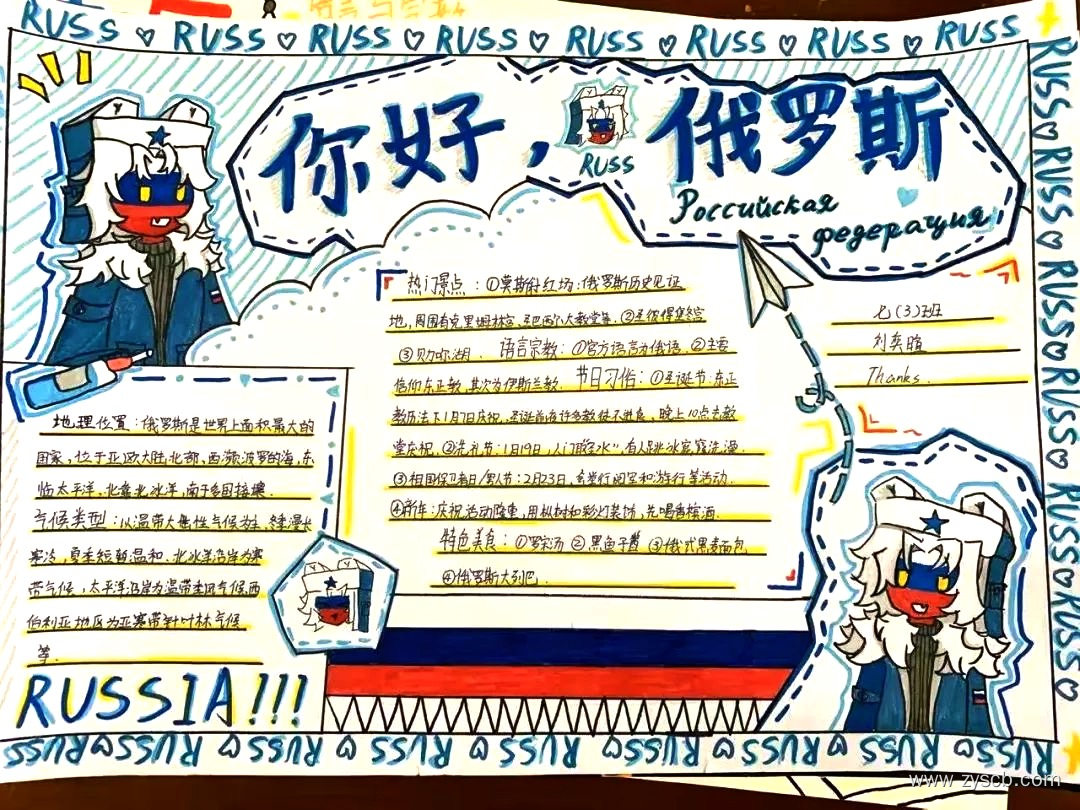 RUSS ♡ RUSS ♡ RUSS ♡ RUSS ♡ RUSS ♡ RUSS ♡ RUSS ♡ RUSS
你好，俄罗斯
RUSS
Российская
федерация
七(3)班
刘奕暄
Thanks.
热门景点：①莫斯科红场：俄罗斯历史见证
地，周围有克里姆林宫、圣巴西尔大教堂等。②圣彼得堡冬宫
③贝加尔湖、语言宗教：①官方语言为俄语。②主要
信仰东正教，其次为伊斯兰教。节日习俗：①圣诞节：东正
教历法下1月7日庆祝，圣诞前夜许多教徒不进食，晚上10点去教
堂庆祝。②洗礼节：1月19日，人们取“圣水”，有人到冰窟窿洗澡。
③祖国保卫者日/男人节：2月23日，会举行阅军和游行等活动。
④新年：庆祝活动隆重，用枞树和彩灯装饰，先喝香槟酒。
特色美食：①罗宋汤 ②黑鱼子酱 ③俄式黑麦面包
④俄罗斯大列巴。
地理位置：俄罗斯是世界上面积最大的
国家，位于亚欧大陆北部，西濒波罗的海，东
临太平洋，北靠北冰洋，南与多国接壤。
气候类型：以温带大陆性气候为主，冬季漫长
寒冷，夏季短暂温和。北冰洋沿岸为寒
带气候，太平洋沿岸为温带季风气候西
伯利亚地区为亚寒带针叶林气候
等。
RUSSIA!!!
RUSS♡RUSS♡RUSS♡RUSS♡RUSS♡RUSS♡
RUSS ♡ RUSS ♡ RUSS ♡ RUSS ♡ RUSS ♡ RUSS ♡ RUSS ♡ RUSS ♡ RUSS
www.zyscb.com